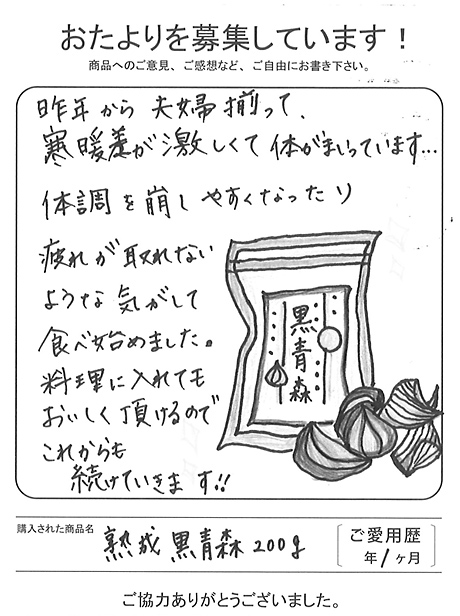 おたよりを募集しています！
商品へのご意見、ご感想など、ご自由にお書き下さい。
昨年から夫婦揃って、
寒暖差が激しくて体がまいっています…
体調を崩しやすくなったり
疲れが取れない
ような気がして
食べ始めました。
料理に入れても
おいしく頂けるので
これからも
続けていきます!!
黒青森
購入された商品名
熟成 黒青森 200g
ご愛用歴
年/ヶ月
ご協力ありがとうございました。